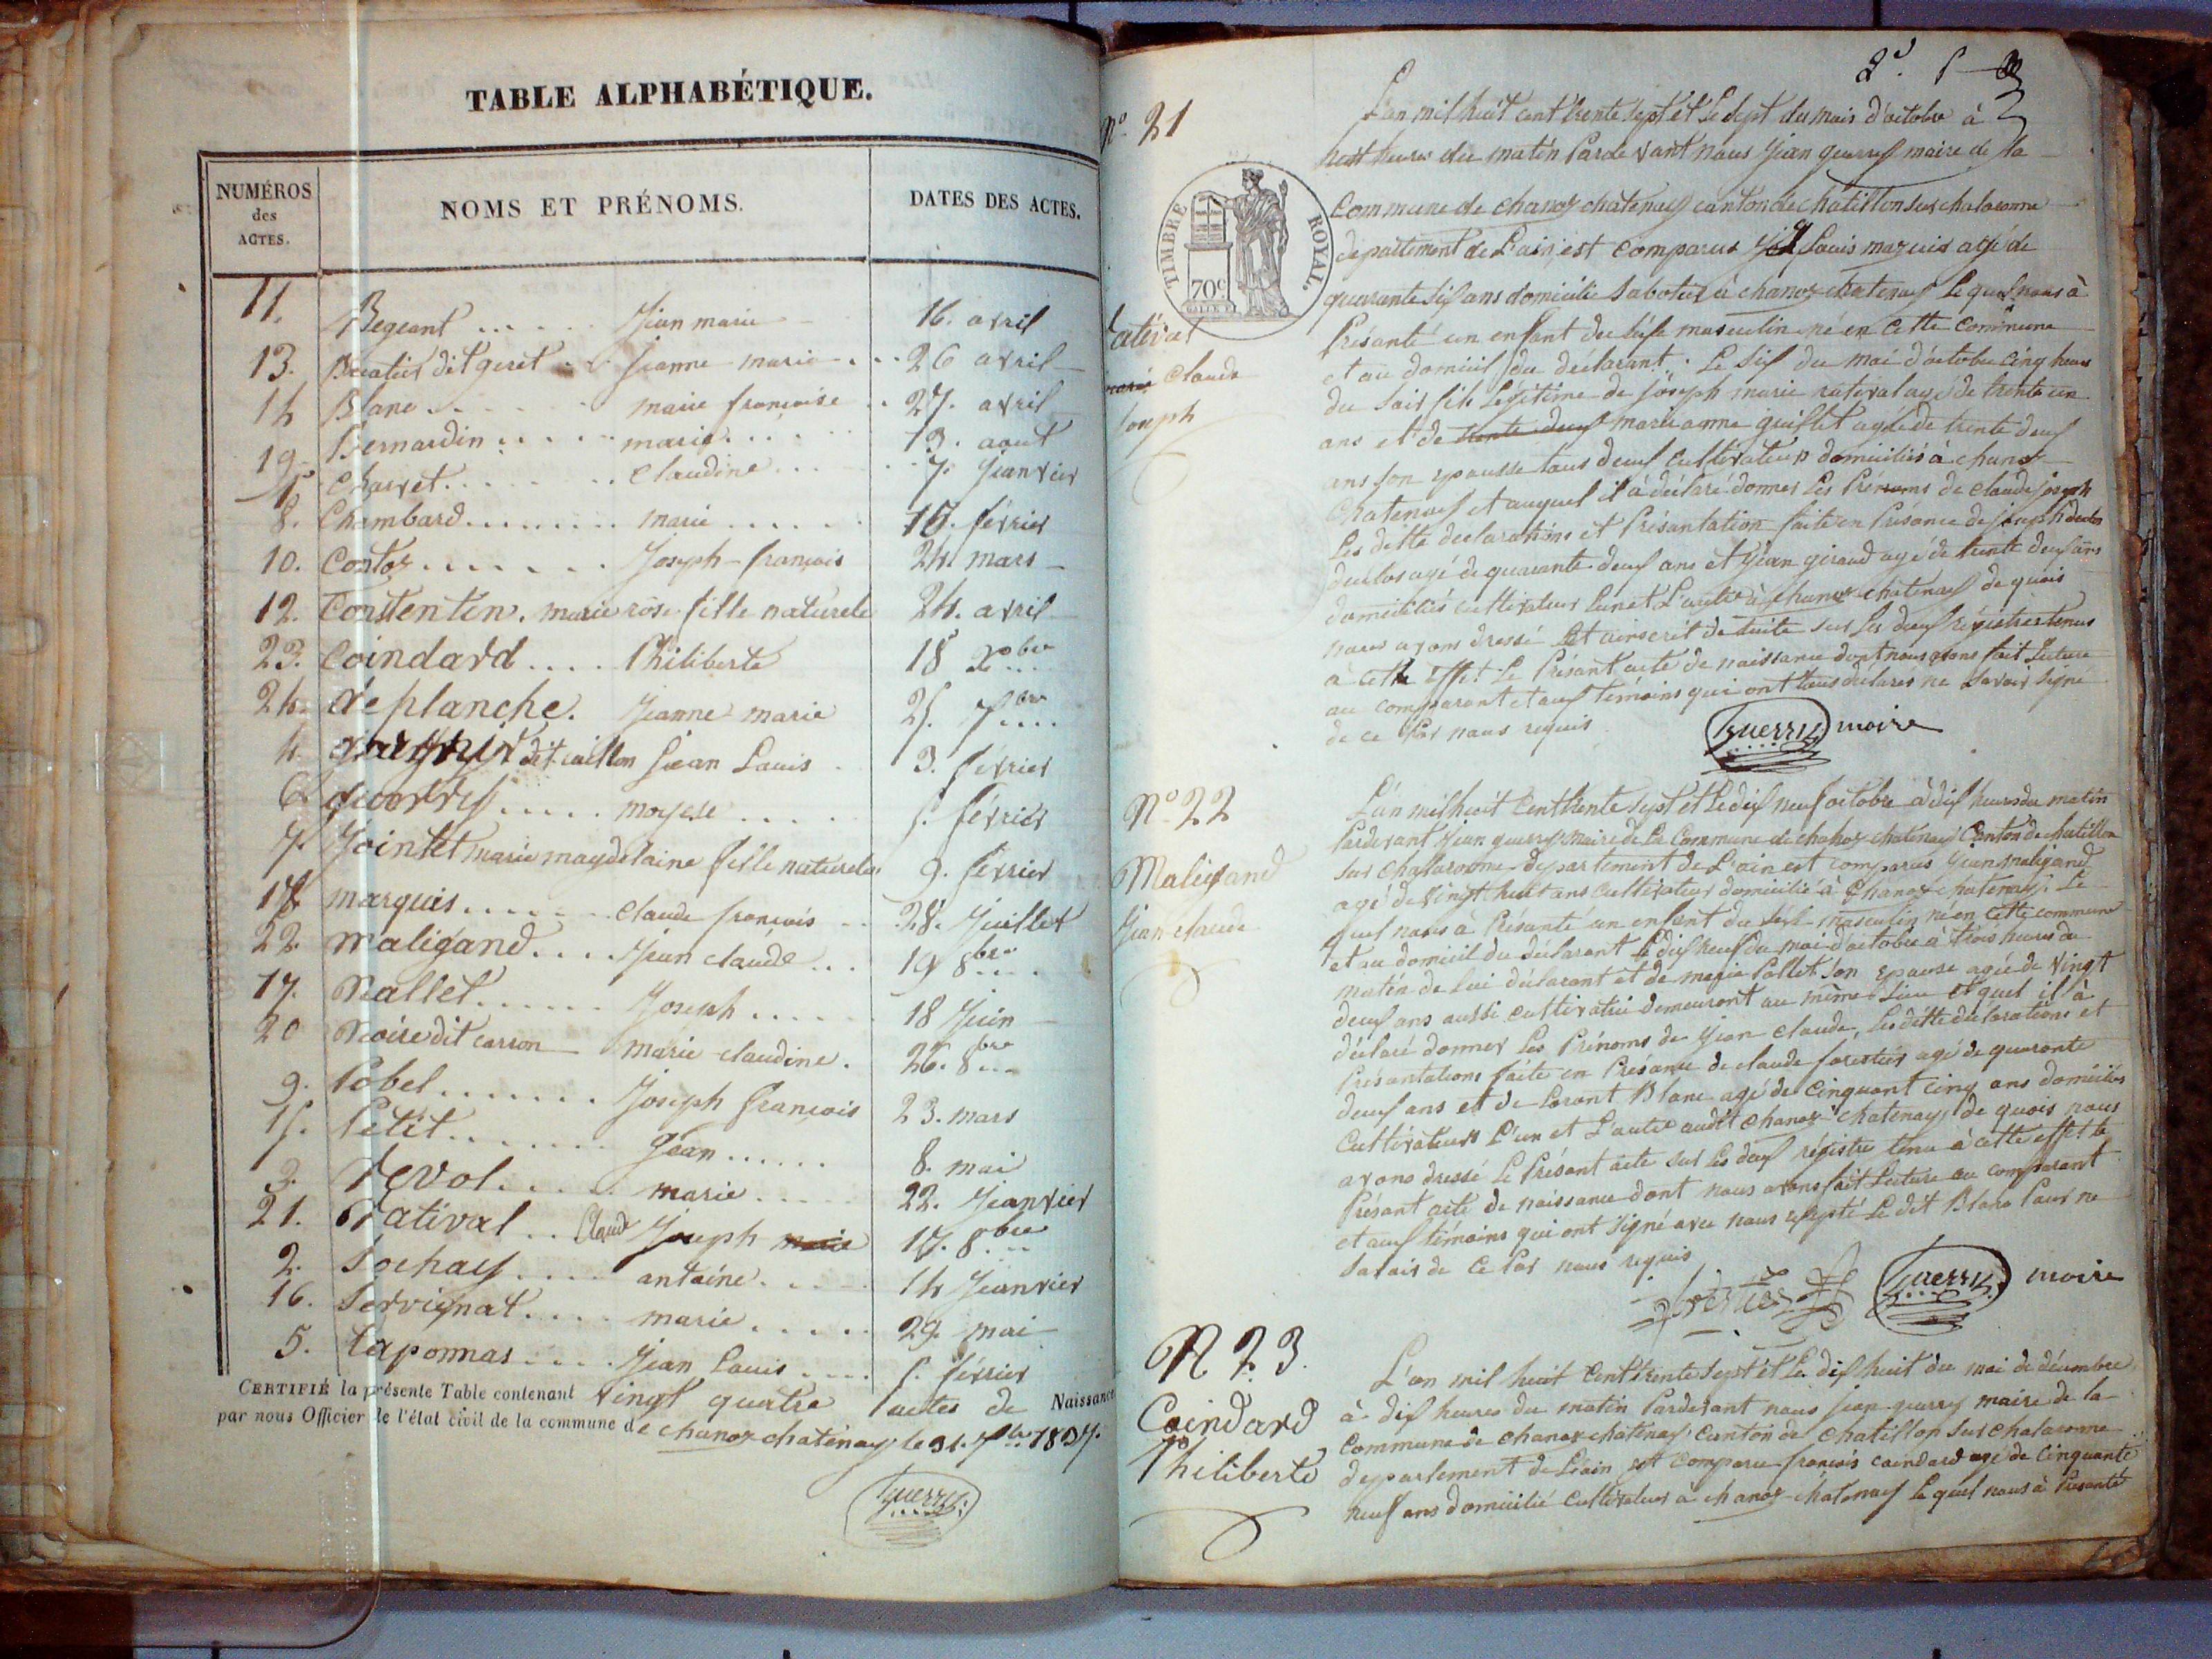 TABLE ALPHABÉTIQUE.
NUMÉROS des ACTES.
NOMS ET PRÉNOMS.
DATES DES ACTES.
11. Begeant ..... Jean marie 16. avril
13. dit geret .. Jeanne marie ... 26 avril
14 Blanc ..... marie françoise .. 27. avril
19. Bernardin ..... marie ..... 13. aout
1. Charvet ....... Claudine ..... 7. Jeanvier
8. Chambard ........ marie ...... 15. février
10. Contoz ....... Joseph-françois 24. mars
12. Constentin. marie rose fille naturele 24. avril
23. Coindard .... Philiberte 18 Xbre
24. deplanche. Jeanne marie 25. Xbre
4. dit caillon Jean Louis . 3. février
6. guerrey ..... moyese ..... 5. février
7. Jointet marie magdelaine fille naturele 9. février
18 marquis ....... claude françois .. 28. Juillet
22. maligand .... Jean claude ... 19 8bre
17. Nallet ...... Joseph ...... 18 Juin
20 Noire dit carron marie claudine. 26. 8bre
9. Pobel ....... Joseph françois 23. mars
15. Petit ....... Jean ...... 8. mai
3. revol ..... marie ..... 22. Jeanvier
21. Ratival .. Claude Joseph marie 17. 8bre
2. Sochay .... antoine .... 14 Jeanvier
16. Servignat .... marie ..... 29. mai
5. taponnas .... Jean Louis .... 5. février
CERTIFIÉ la présente Table contenant vingt quatre actes de Naissance
par nous Officier de l'état civil de la commune de chanoz chatenay le 31. Xbre 1837.
Guerrey
2e. 5
No. 21
L'an mil huit cent trente sept et le sept du mois d'octobre à
huit heures du matin Parde vant nous Jean guerrey maire de la
TIMBRE ROYAL.
70c
commune de chanoz chatenay canton de chatillon sur chalaronne
departement de L'ain, est comparus Louis marquis agé de
quarante six ans domicilié Sabotier à chanoz chatenay Le quel nous à
Rativat
Présanté un enfant du séxe masculin né en cette commune
et au domicil du déclarant. Le six du moi d'octobre cinq heures
marie Claude
du soir fils Légitime de joseph marie rativat agé de trente un
Joseph
ans et de trente deux marie anne guillet agée de trente deux
ans son epousse tous deux cultivateurs domiciliés à chanoz
chatenay et auquel il à déclaré donner Les Prénoms de claude joseph
Les ditte declarations et Présantation faite en Présance de joseph
duclos agé de quarante deux ans et Jean giraud agé de trente deux ans
domiciliés cultivateurs L'un et L'autre à chanoz chatenay de quois
nous avons dressé et ainscrit de suite sur Les deux régistres tenus
à cette effet Le Présant acte de naissance dont nous avons fait Lecture
au comparant et aux témoins qui ont tous déclarés ne savoir signé
de ce Par nous requis
Guerrey maire
No. 22
L'an mil huit cent trente sept et Le dix neuf octobre à dix heures du matin
Pardevant Jean guerrey maire de La commune de chanoz chatenay Canton de chatillon
Maligand
sur chalaronne departement de L'ain est comparus Jean maligand
agé de vingt huit ans cultivateur domicilié à chanoz chatenay; Le
Jean claude
quel nous à Présanté un enfant du séxe masculin né en cette commune
et au domicil du déclarant Le dix neuf du moi d'octobre à trois heures du
matin de Lui déclarant et de marie Pallet son epouse agée de vingt
deux ans aussi cultivatrice demeurant au même Lieu et quel il à
déclaré donner Les Prénoms de Jean claude, Les ditte déclarations et
Présantations faite en Présance de claude forestier agé de quarante
deux ans et de Lorant Blanc agé de cinquant cinq ans domiciliés
cultivateurs L'un et L'autre audit chanoz chatenay de quois nous
avons dressé Le Présant acte sur Les deux régistre tenu à cette effet Le
Présant acte de naissance dont nous avons fait Lecture au comparant
et aux témoins qui ont signé avec nous excepté Le dit Blanc Pour ne
savoir de ce Par nous requis
forestier Guerrey maire
N 23.
L'an mil huit cent trente sept et Le dix huit du moi de décembre
à dix heures du matin Pardevant nous jean guerrey maire de la
Coindard
commune de chanoz chatenay Canton de chatillon sur chalaronne
Philiberte
departement de L'ain est comparu françois coindard agé de cinquante
neuf ans domicilié cultivateur à chanoz-chatenay Le quel nous à Présanté